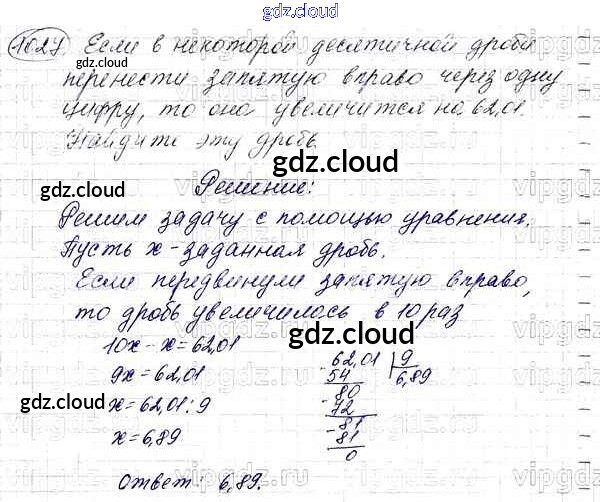 gdz.cloud
1027 Если в некоторой десятичной дроби
перенести запятую вправо через одну
цифру, то она увеличится на 62,01.
Найдите эту дробь.
gdz.cloud
gdz.cloud
Решение:
Решим задачу с помощью уравнения.
Пусть х - заданная дробь.
Если передвинули запятую вправо,
то дробь увеличилось в 10 раз
gdz.cloud
10х - х = 62,01
9х = 62,01
х = 62,01 : 9
х = 6,89
62,01 9
- 54 6,89
80
- 72
- 81
81
0
gdz.cloud
gdz.cloud
Ответ: 6,89.
gdz.cloud